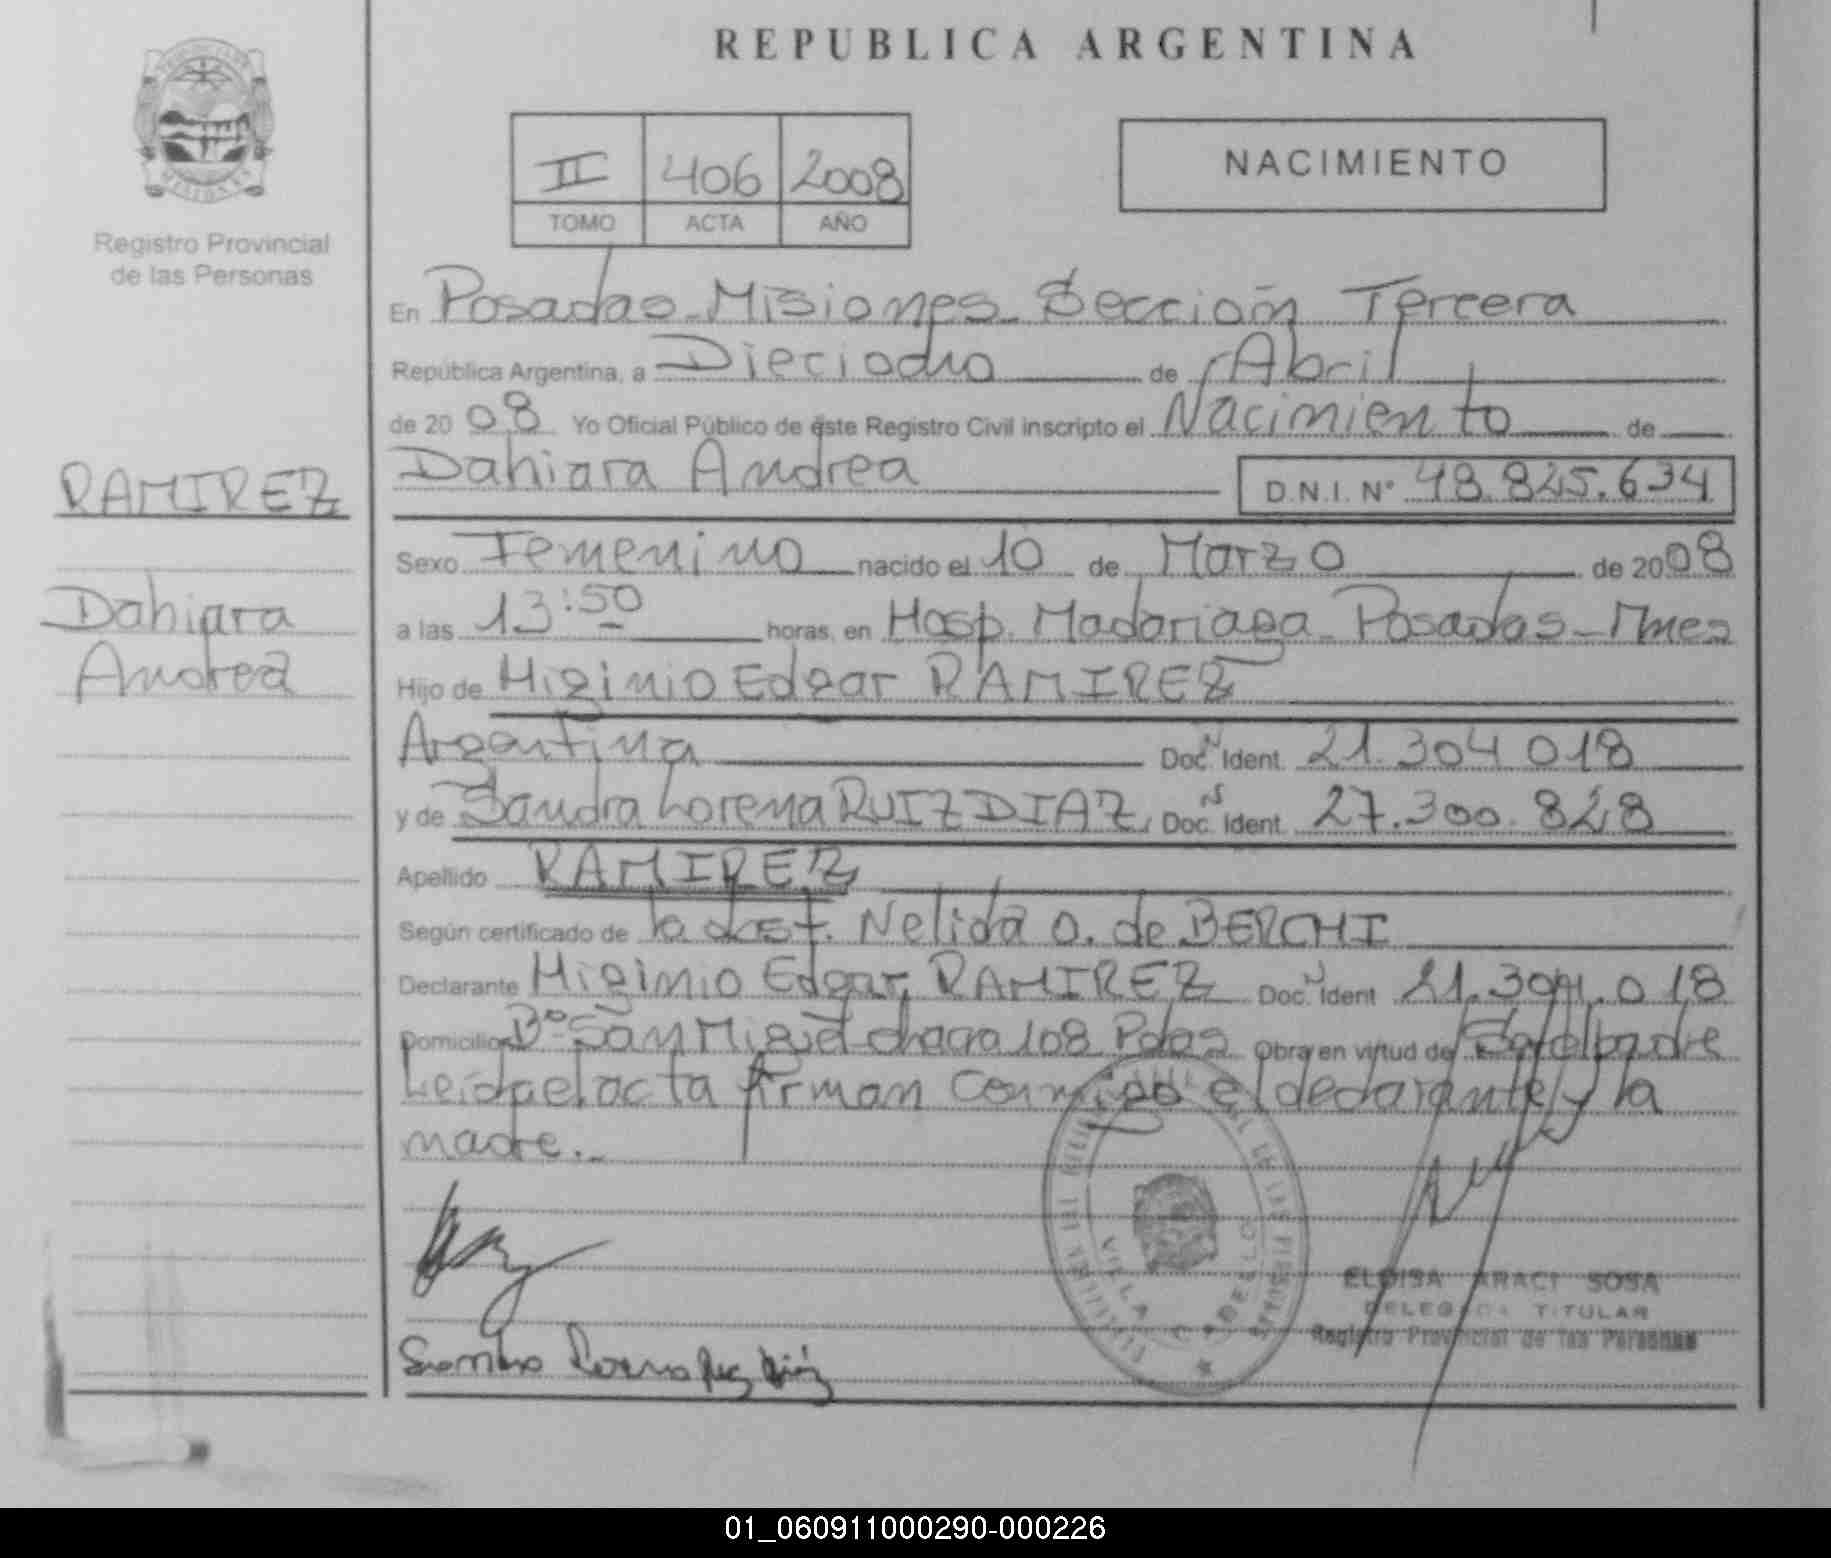 REPUBLICA ARGENTINA
II 406 2008
TOMO ACTA AÑO
NACIMIENTO
Registro Provincial
de las Personas
En Posadas - Misiones - Sección Tercera
República Argentina, a Dieciocho de Abril
de 2008 Yo Oficial Público de éste Registro Civil inscripto el Nacimiento de
Dahiara Andrea D.N.I. Nº 48.825.634
RAMIREZ
Dahiara
Andrea
Sexo Femenino nacido el 10 de Marzo de 2008
a las 13:50 horas, en Hosp. Madariaga - Posadas - Mnes
Hijo de Higinio Edgar RAMIREZ
Argentina Doc. Ident. 21.304.018
y de Sandra Lorena RUIZ DIAZ Doc. Ident. 27.300.828
Apellido RAMIREZ
Según certificado de la obst. Nelida O. de BERCHI
Declarante Higinio Edgar RAMIREZ Doc. Ident 21.304.018
Domicilio Bº San Miguel chacra 108 Pdas Obra en virtud de Es el padre
Leida el acta firman conmigo el declarante y la
madre.-
VILLA CABELLO
ELOISA ARACI SOSA
DELEGADA TITULAR
Registro Provincial de las Personas
01_060911000290-000226